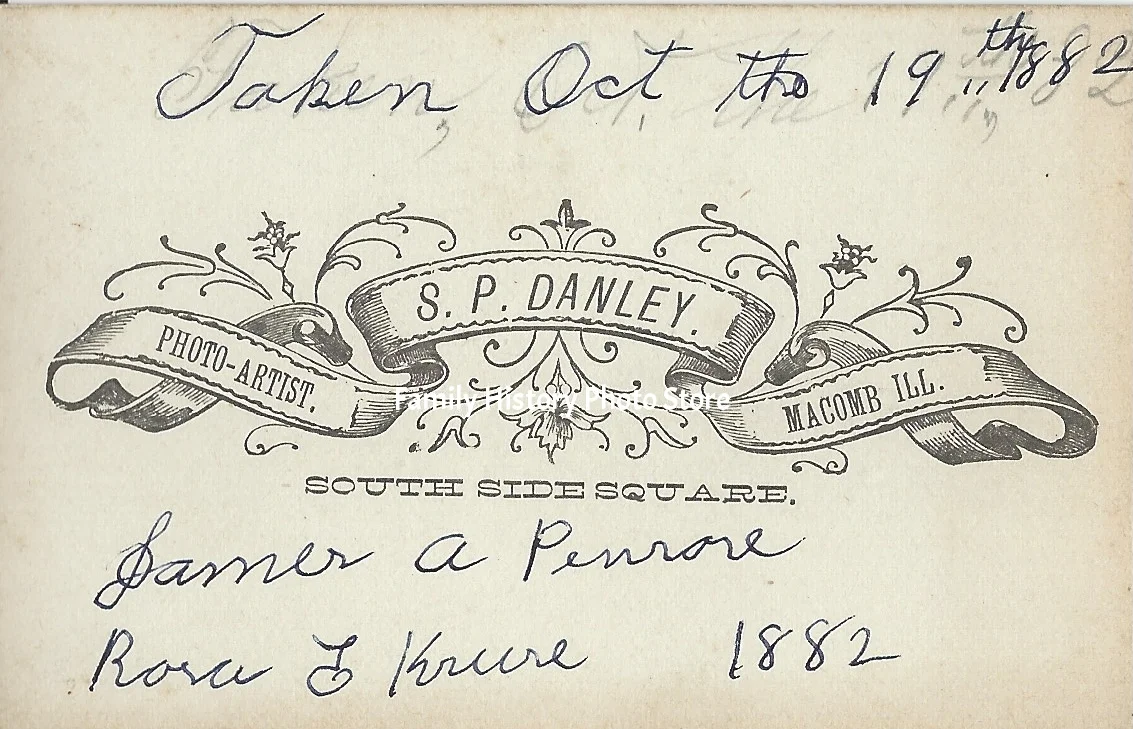 Taken Oct the 19th 1882
S. P. DANLEY.
PHOTO-ARTIST.
MACOMB ILL.
Family History Photo Store
SOUTH SIDE SQUARE.
James A Penrose
Rosa E Kruse 1882